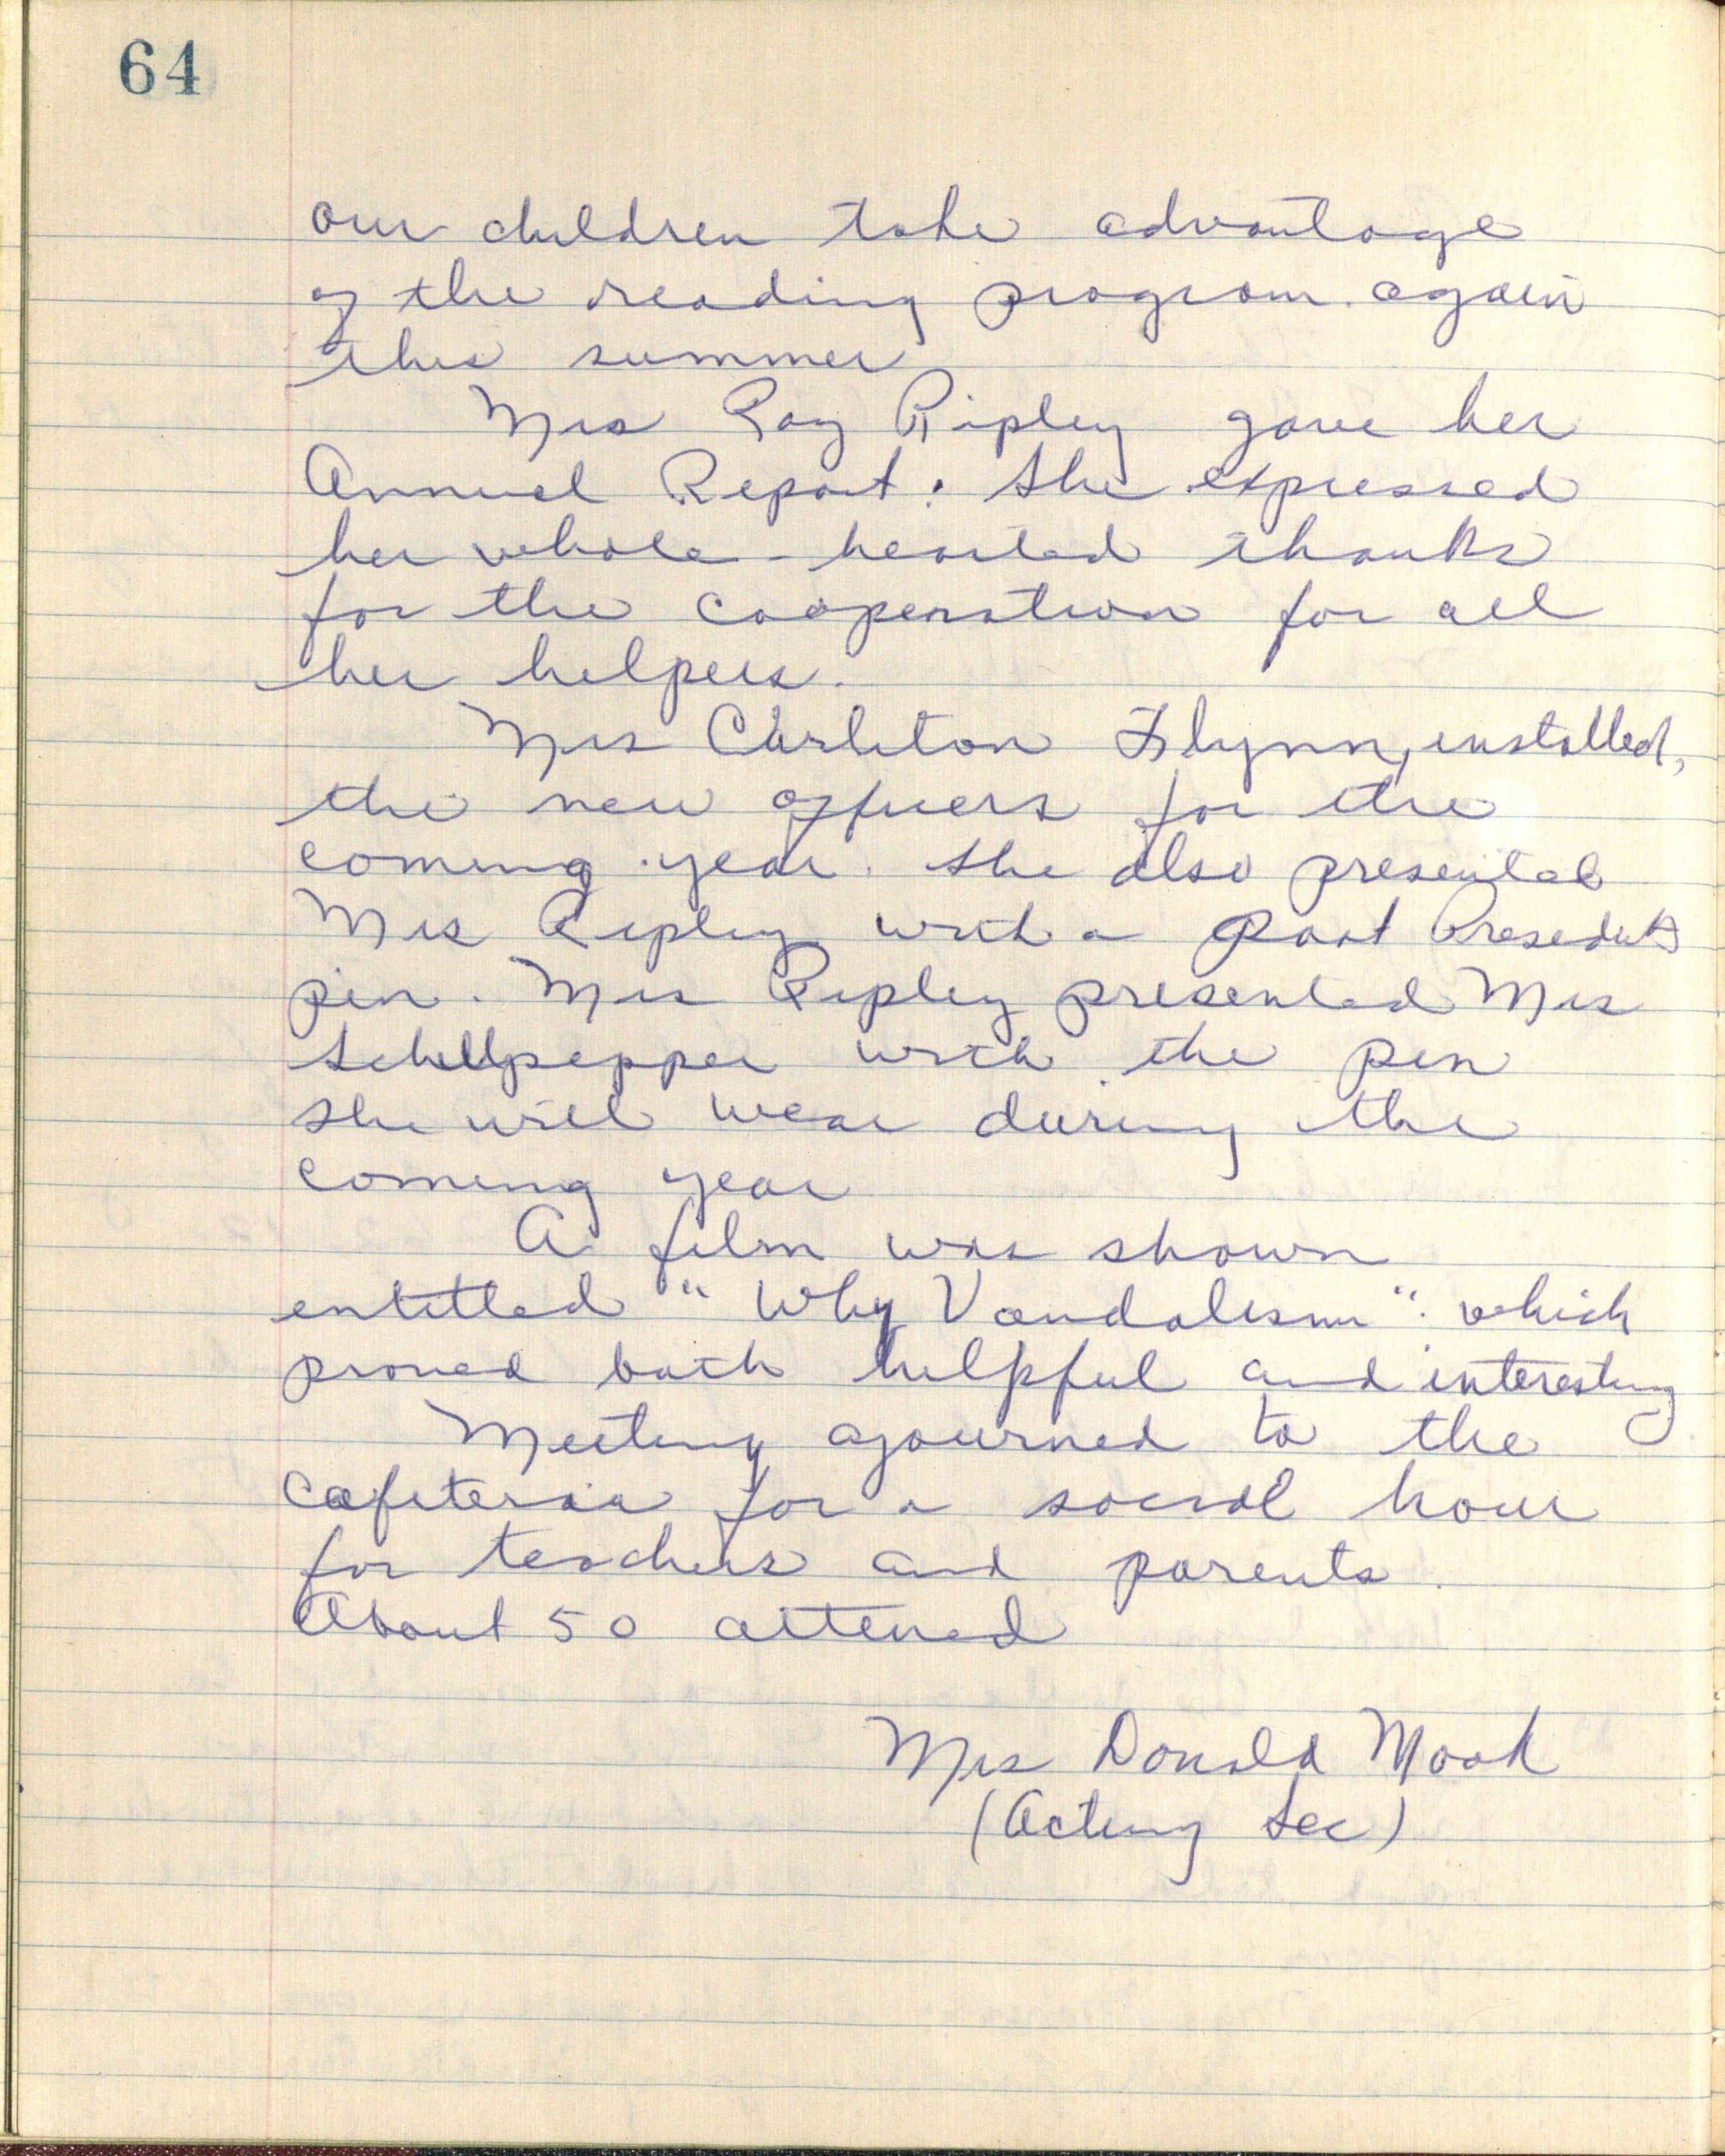 64
our children take advantage
of the reading program again
this summer
Mrs Ray Ripley gave her
Annual Report. She expressed
her whole-hearted thanks
for the cooperation for all
her helpers.
Mrs Carleton Flynn, installed,
the new officers for the
coming year. She also presented
Mrs Ripley with a Past Presedents
pin. Mrs Ripley presented Mrs
Schellpepper with the pin
she will wear during the
coming year
A film was shown
entitled "Why Vandalism" which
proved both helpful and interesting
Meeting ajourned to the
cafeteria for a social hour
for teachers and parents.
About 50 attened
Mrs Donald Mook
(Acting Sec)